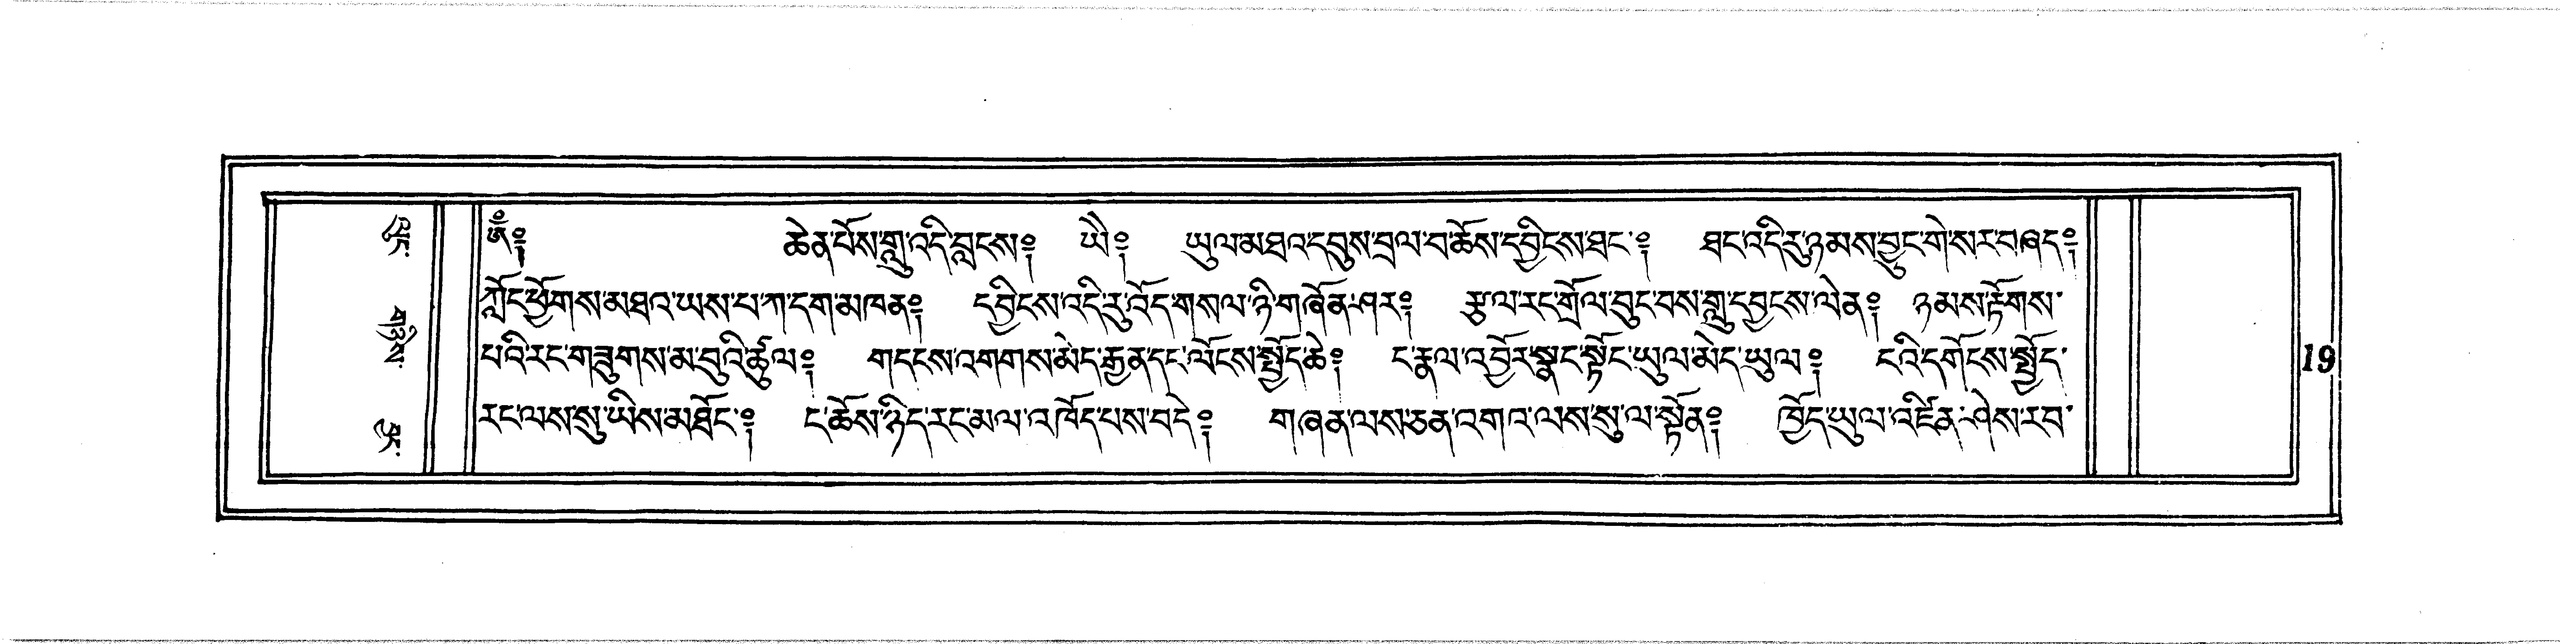 ༀ༔ ཆེན་པོས་གླུ་འདི་བླངས༔ ཡེ༔ ཡུལ་མཐའ་དབུས་བྲལ་བ་ཆོས་དབྱིངས་ཐང་༔ ཐང་འདི་རུ་ཉམས་བྱུང་གེ་སར་བཞད༔
ཀློང་ཕྱོགས་མཐའ་ཡས་པ་ཀ་དག་མཁན༔ དབྱིངས་འདི་རུ་འོད་གསལ་ཉི་གཞོན་ཤར༔ རྩལ་རང་གྲོལ་བུང་བས་གླུ་དབྱངས་ལེན༔ ཉམས་རྟོགས་
པའི་རང་གཟུགས་མ་བུའི་ཚུལ༔ གདངས་འགགས་མེད་རྒྱན་དང་ལོངས་སྤྱོད་ཆེ༔ ང་རྣལ་འབྱོར་སྣང་སྟོང་ཡུལ་མེད་ཡུལ༔ ངའི་དགོངས་སྤྱོད་
རང་ལས་སུ་ཡིས་མཐོང་༔ ང་ཆོས་ཉིད་རང་མལ་འཁོད་པས་བདེ༔ གཞན་ལས་ཅན་འགའ་ལས་སུ་ལ་སྟོན༔ ཁྱོད་ཡུལ་འཛིན་ཤེས་རབ་
19